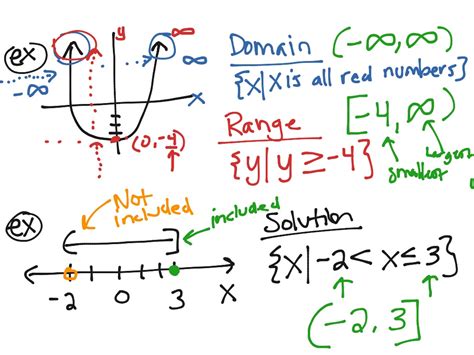 ex
y
∞
∞
-∞
x
(0,-4)
Domain (-∞,∞)
{x|x is all red numbers}
Range [-4,∞)
{y|y ≥ -4}
smallest
Largest
ex
Not included
included
-2 0 3 X
Solution
{x|-2 < x ≤ 3}
(-2, 3]